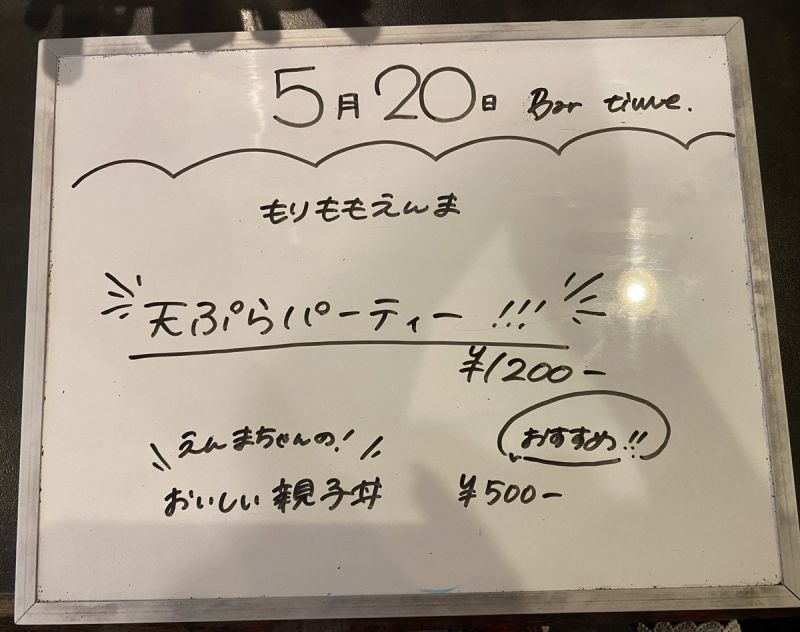 5月20日 Bar time.
もりももえんま
天ぷらパーティー!!!
¥1200-
えんまちゃんの!
おすすめ!!
おいしい親子丼 ¥500-